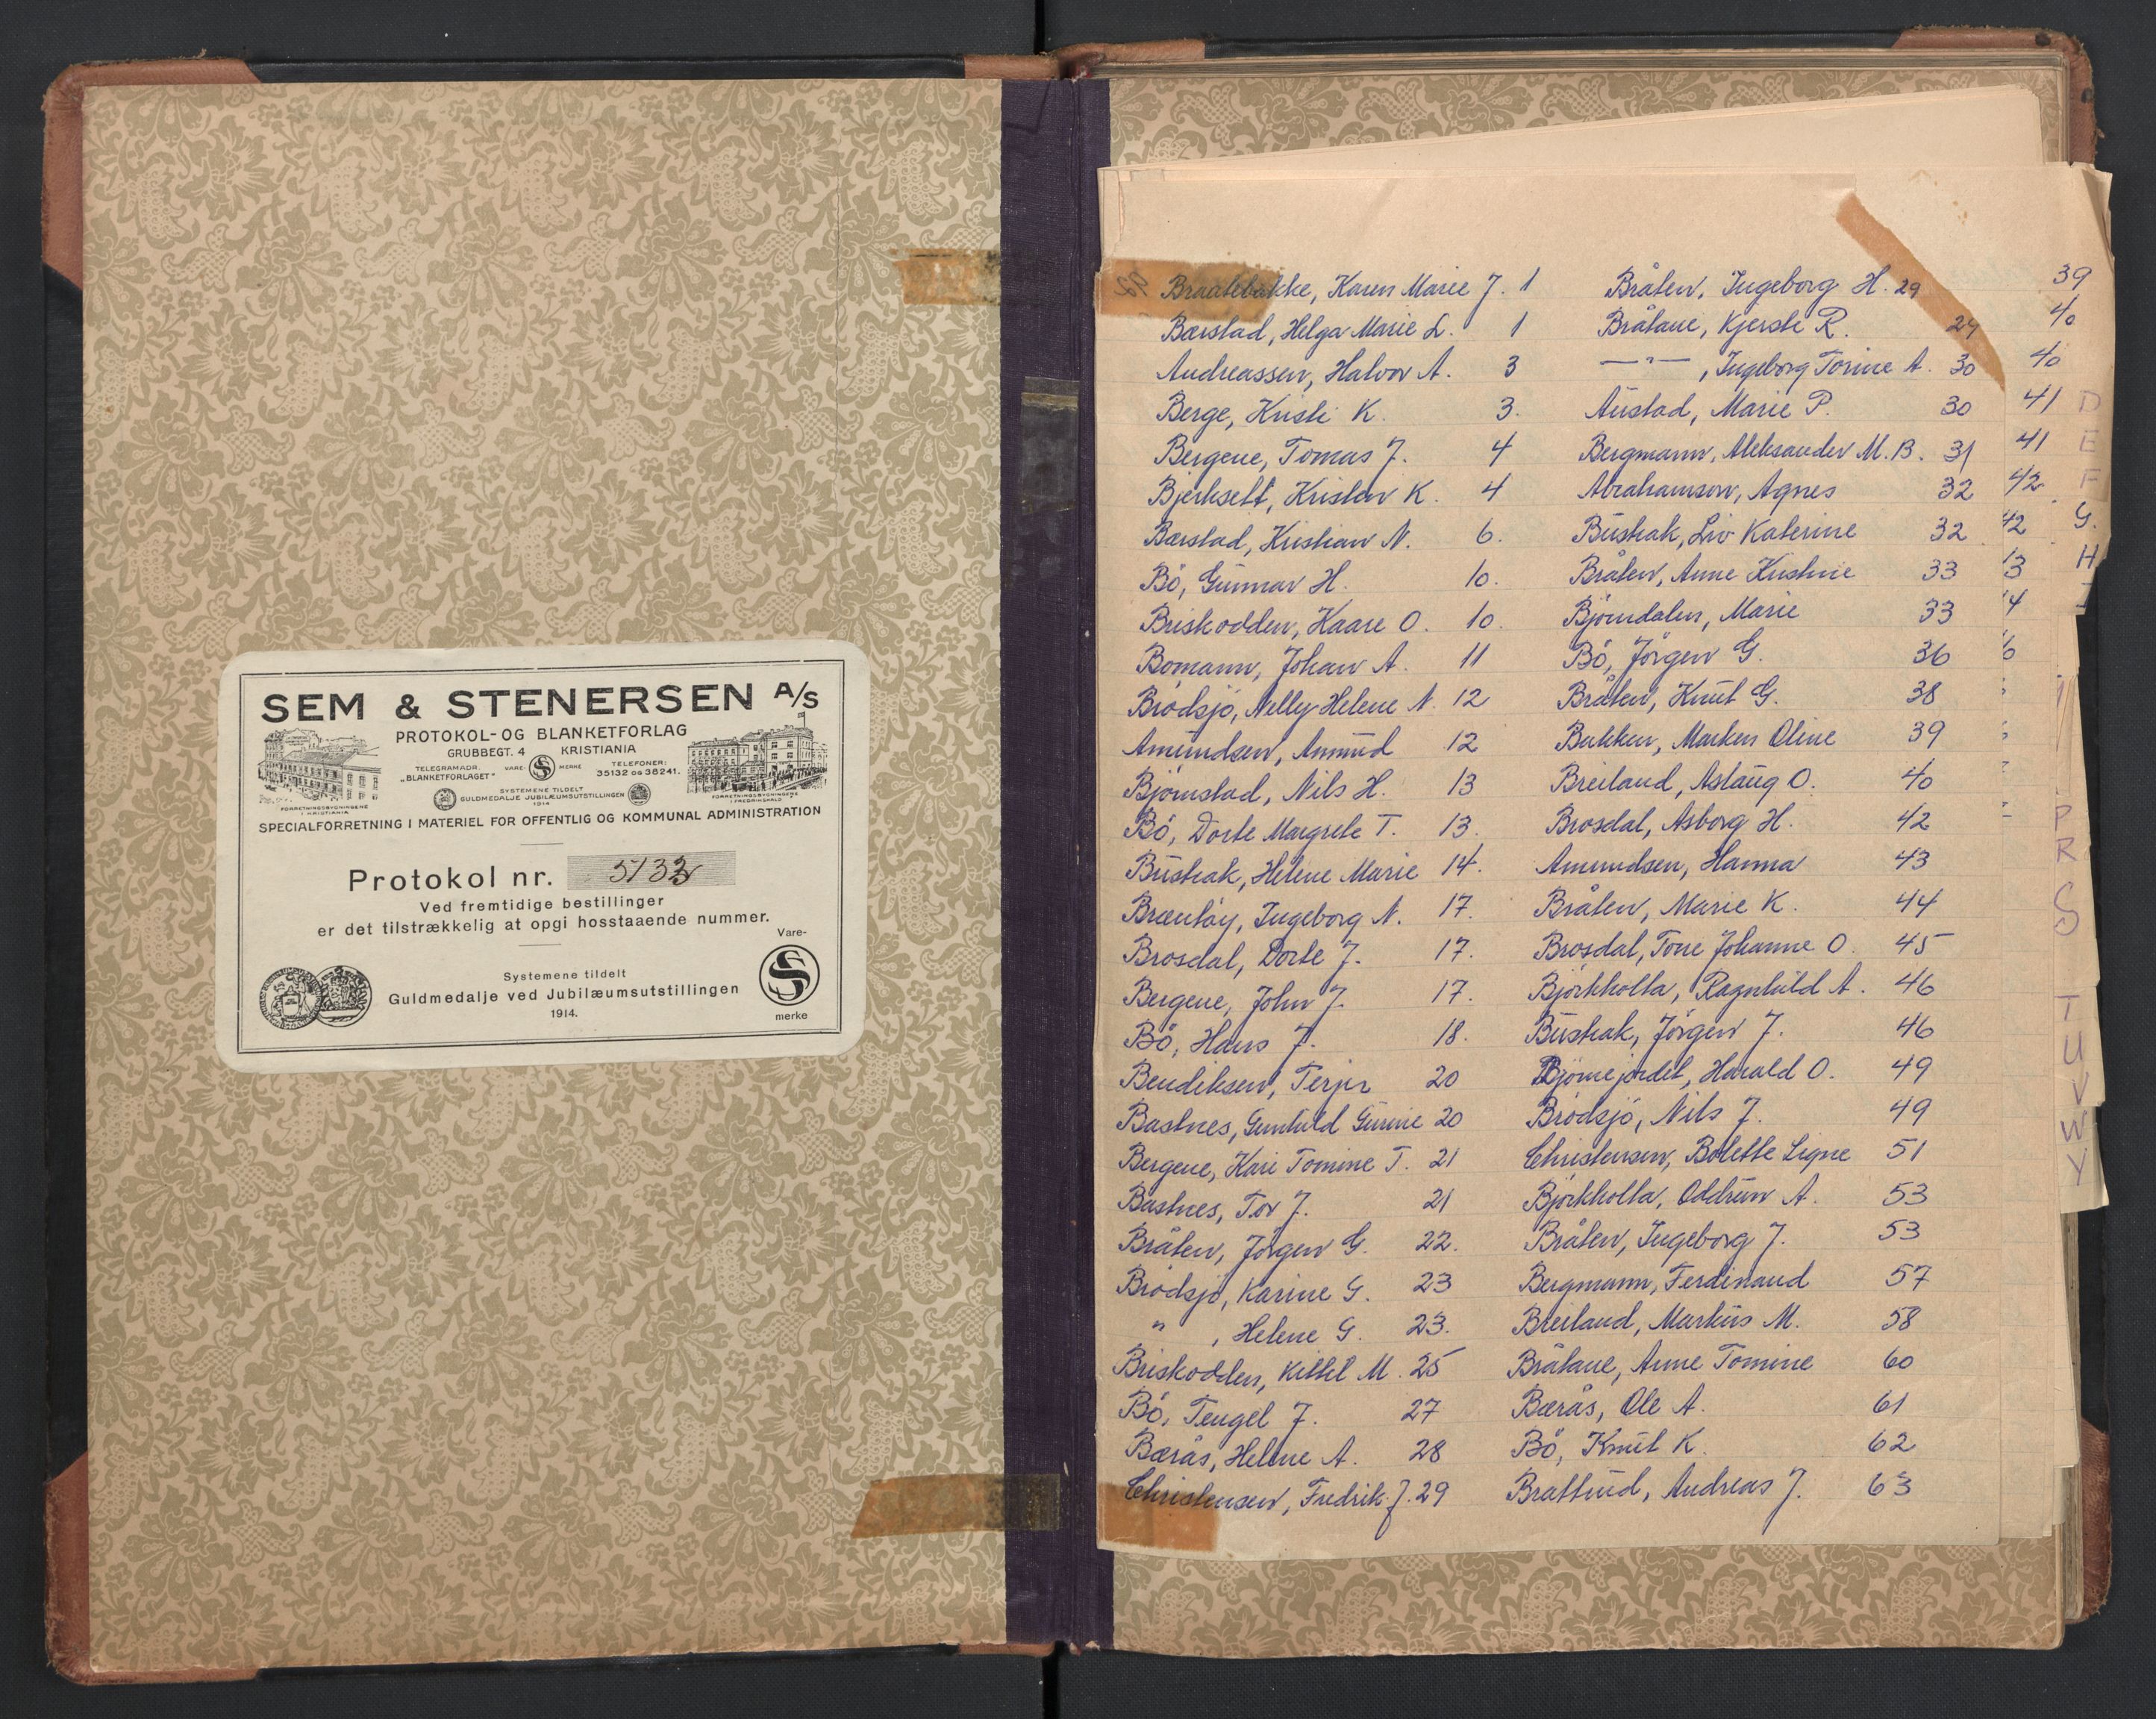 SEM & STENERSEN A/S
PROTOKOL-OG BLANKETFORLAG
GRUBBEGT. 4 KRISTIANIA
TELEGRAMADR. „BLANKETFORLAGET" VARE- S MERKE TELEFONER: 35132 OG 38241.
SYSTEMENE TILDELT
GULDMEDALJE JUBILÆUMSUTSTILLINGEN
1914
FORRETNINGSBYGNINGENE I KRISTIANIA
FORRETNINGSBYGNINGENE I FREDRIKSHALD
SPECIALFORRETNING I MATERIEL FOR OFFENTLIG OG KOMMUNAL ADMINISTRATION
Protokol nr. 5133
Ved fremtidige bestillinger
er det tilstrækkelig at opgi hosstaaende nummer.
Systemene tildelt
Guldmedalje ved Jubilæumsutstillingen
1914.
Vare-
S
merke
Braatebakke, Karen Marie J. 1
Bærstad, Helga Marie L. 1
Andreassen, Halvor A. 3
Berge, Kristi K. 3.
Bergene, Tomas J. 4
Bjerksett, Kristen K. 4
Bærstad, Kristian N. 6.
Bö, Gunnar H. 10.
Briskodden, Kaare O. 10.
Bomann, Johan A. 11
Brödsjö, Nelly Helene N. 12
Amundsen, Anmud 12
Björnstad, Nils H. 13
Bö, Dorte Margrete T. 13.
Bushak, Helene Marie 14.
Bræntöy, Ingeborg N. 17.
Brosdal, Dorte J. 17.
Bergene, John J. 17.
Bö, Hans J. 18.
Bendiksen, Terjer 20
Bastnes, Gunhild Gurine 20
Bergene, Kari Tomine T. 21
Bastnes, Tor J. 21
Bråten, Jörgen G. 22.
Brödsjö, Karine G. 23
" , Helene G. 23.
Briskodden, Kittil M. 25
Bö, Tengel J. 27
Bærås, Helene A. 28
Christensen, Fredrik J. 29
Bråten, Ingeborg H. 29
Bråtane, Kjersti R. 29
—"— , Ingeborg Torine A. 30
Austad, Marie P. 30
Bergmann, Aleksander M. B. 31
Abrahamsen, Agnes 32
Bushak, Liv Katerine 32
Bråten, Anne Kristine 33
Björndalen, Marie 33
Bö, Jörgen G. 36
Bråten, Knut G. 38
Bakken, Marken Oline 39
Breiland, Aslaug O. 40
Brosdal, Asborg H. 42
Amundsen, Hanna 43
Bråten, Marie K. 44
Brosdal, Tone Johanne O. 45
Björkholta, Ragnhild A. 46
Bushak, Jörgen J. 46
Björnejordet, Harald O. 49
Brödsjö, Nils J. 49
Christensen, Bolette Signe 51
Björkholta, Oddrun A. 53
Bråten, Ingeborg J. 53
Bergmann, Ferdinand 57
Breiland, Markus M. 58
Bråtane, Anne Tomine 60
Bærås, Ole A. 61
Bö, Knut K. 62
Brattind, Andreas J. 63
39
40
40
41
41
42
42
D
E
F
G.
H
P
R
S
T
U
V
W
Y